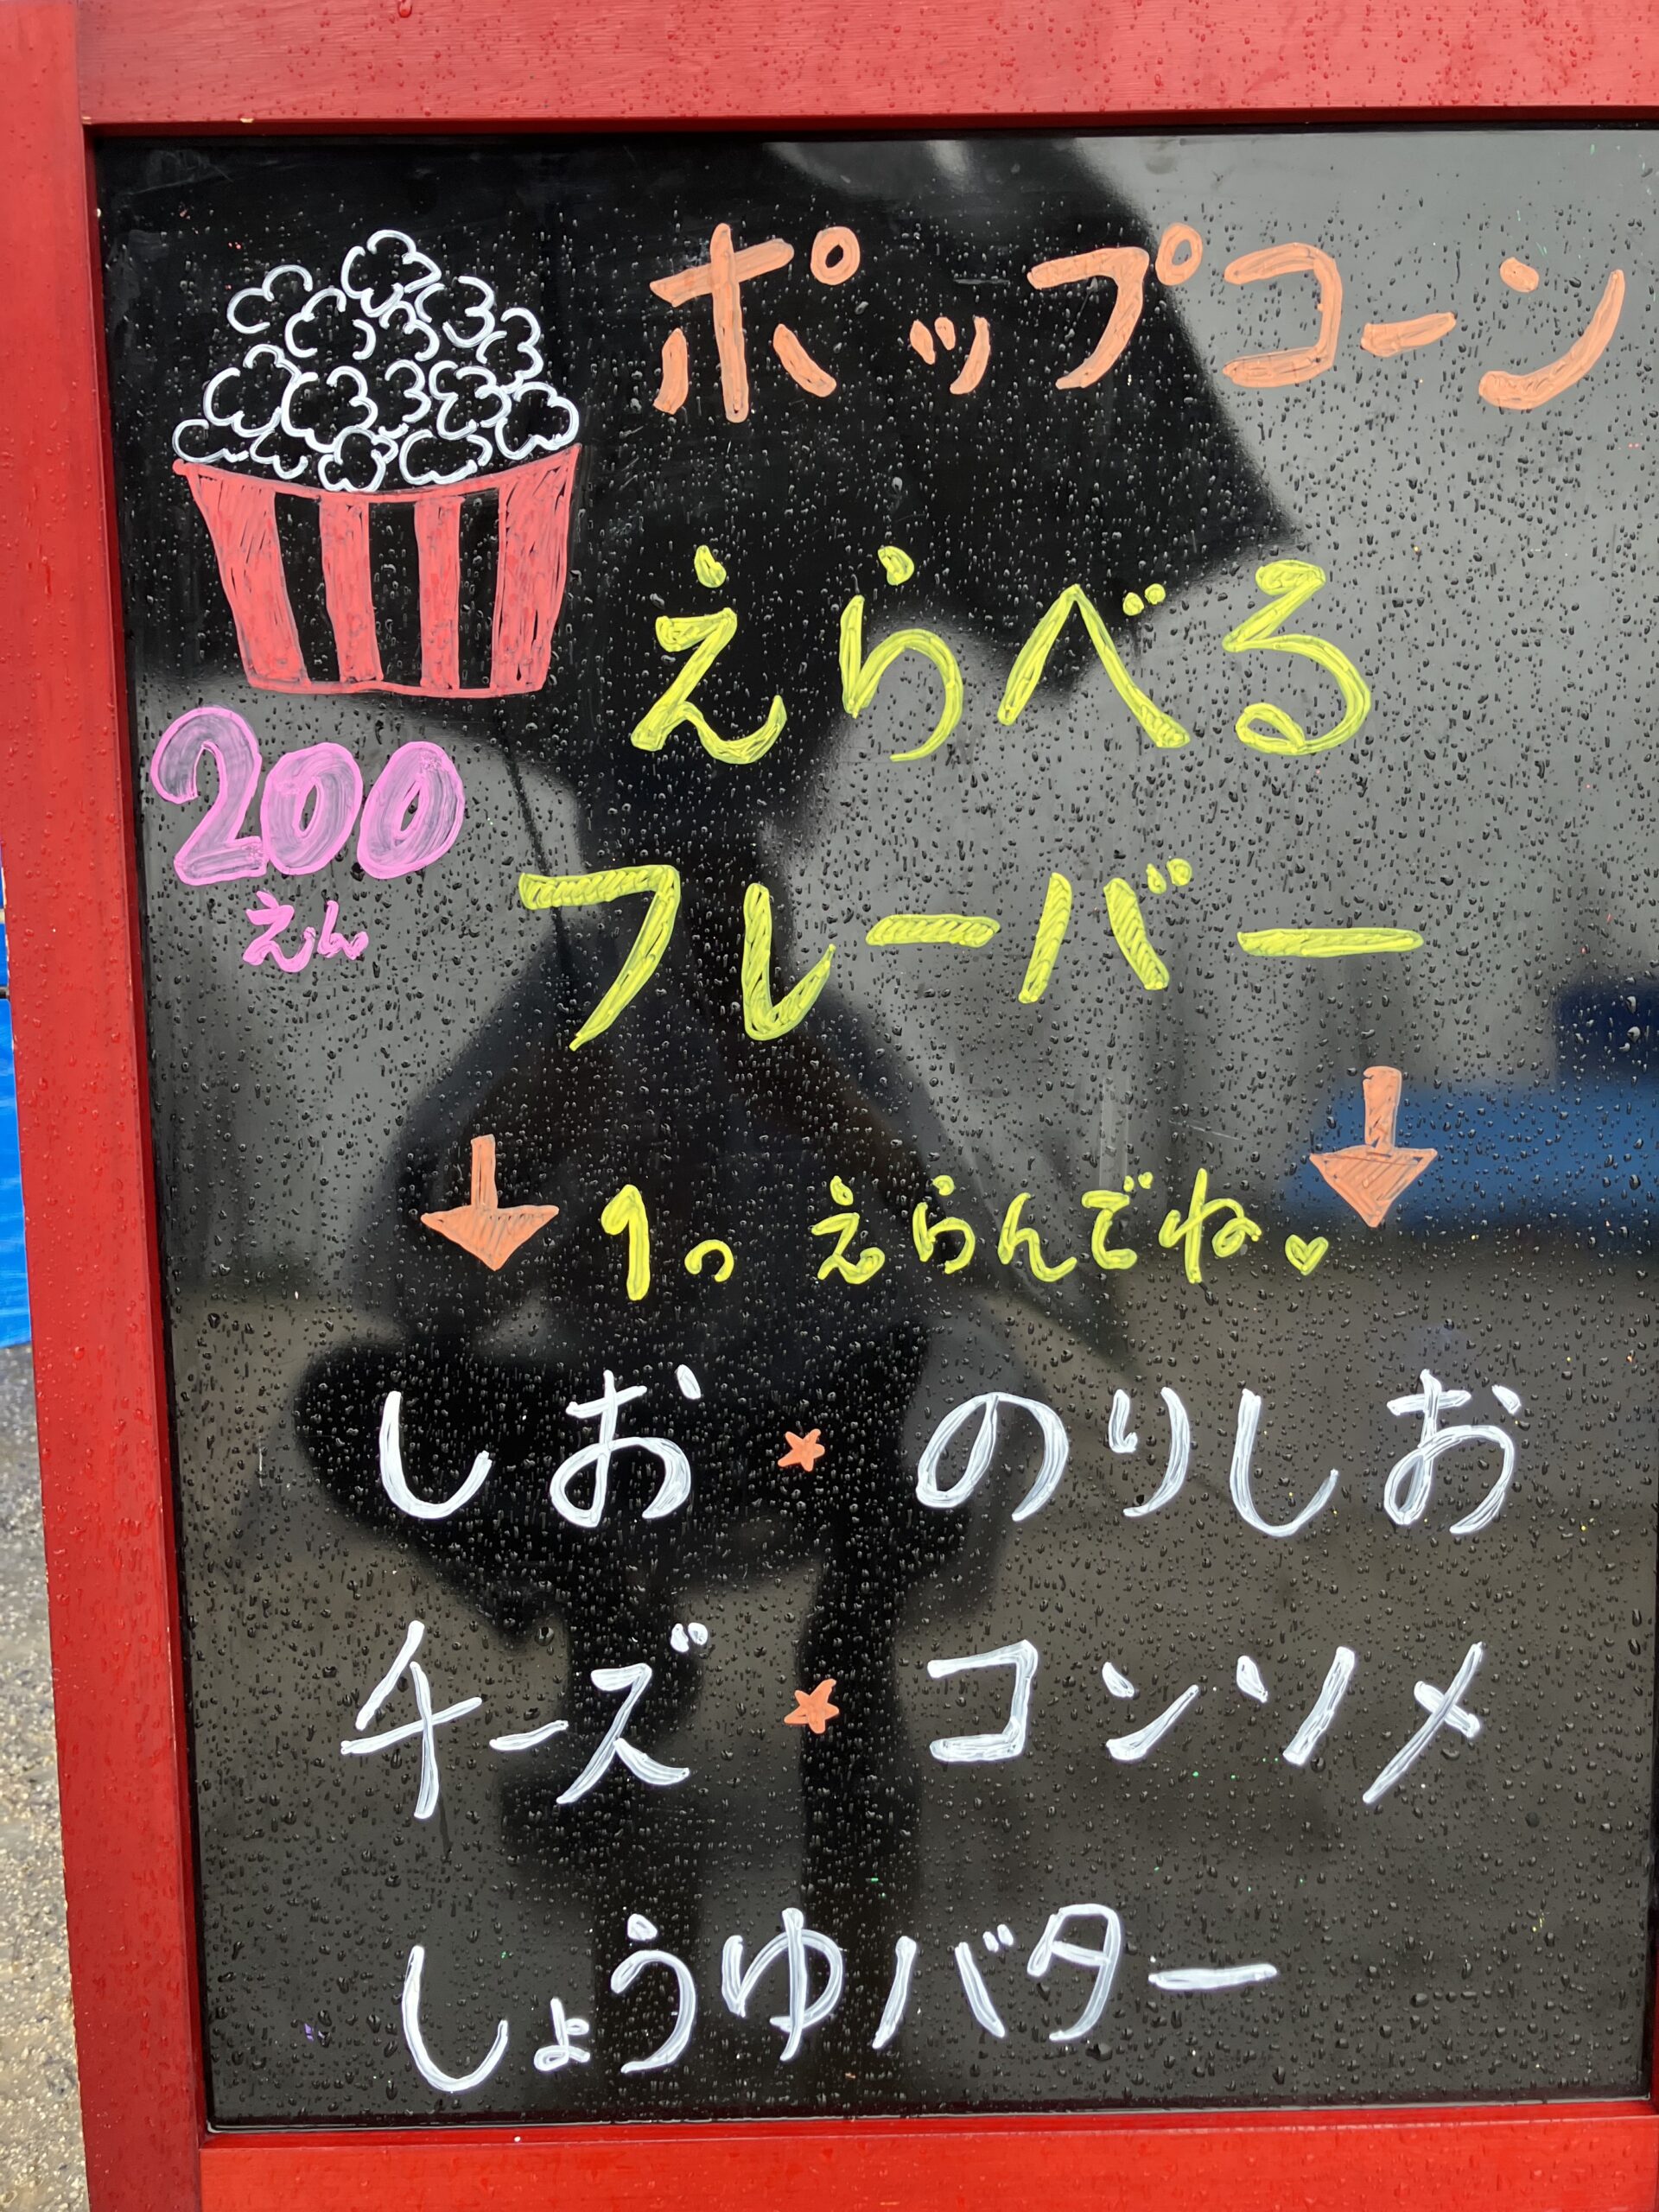 ポップコーン
えらべる
200
えん
フレーバー
1つ えらんでね♡
しお★のりしお
チーズ★コンソメ
しょうゆバター